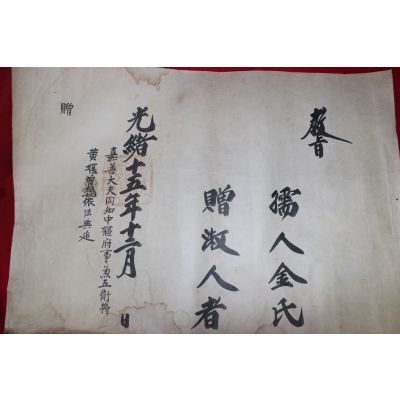 敎旨
孺人金氏
贈淑人者
光緖十五年十二月 日
嘉善大夫同知中樞府事兼五衛將
黃 曾祖 依法典追
贈